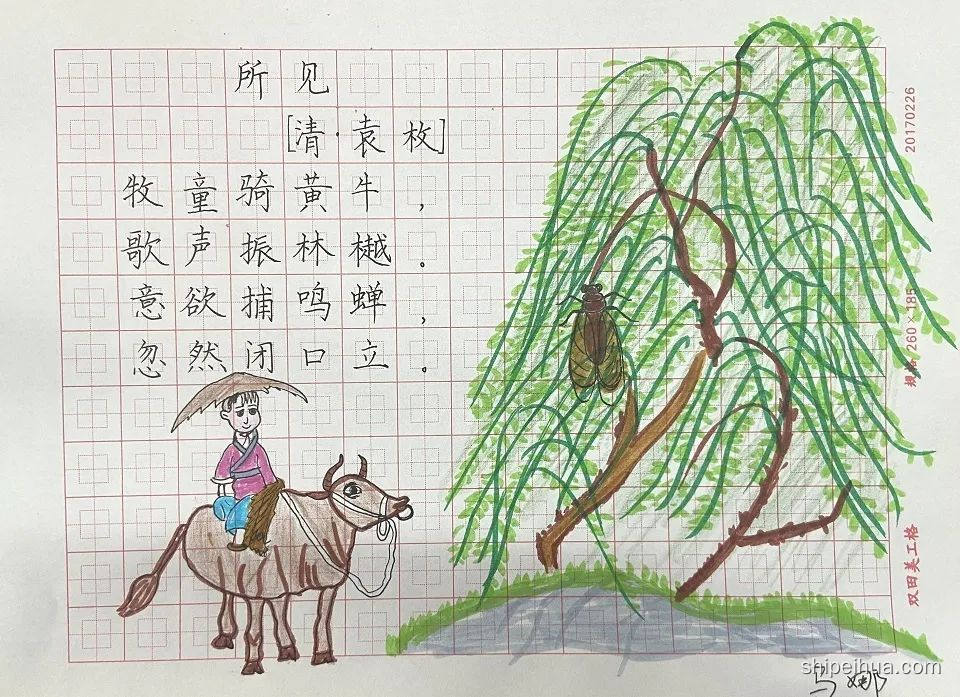 所见
[清·袁枚]
牧童骑黄牛，
歌声振林樾。
意欲捕鸣蝉，
忽然闭口立。
20170226
规格 260×185
双田美工格
shipeihua.com